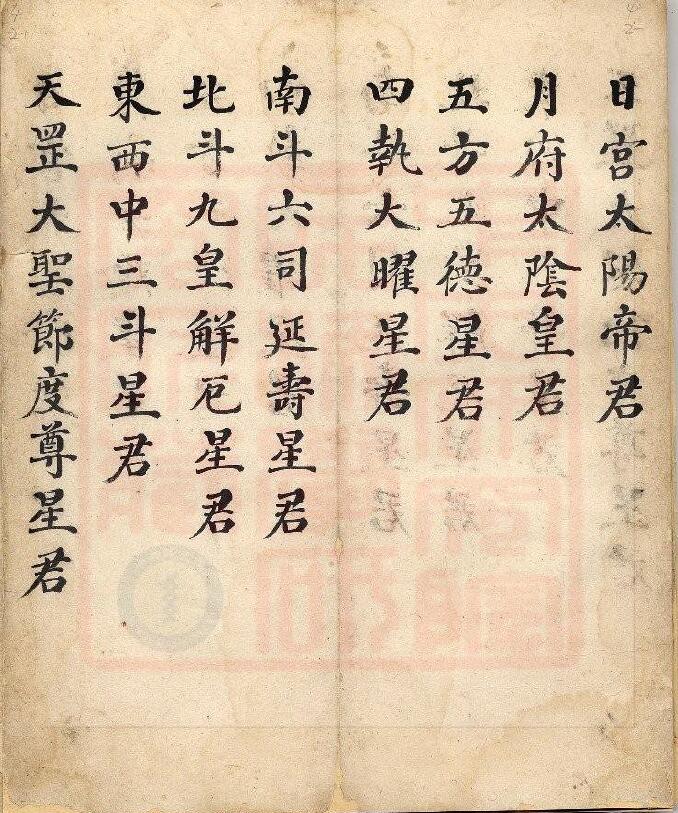 日宮太陽帝君
月府太陰皇君
五方五德星君
四執大曜星君
南斗六司延壽星君
北斗九皇解厄星君
東西中三斗星君
天罡大聖節度尊星君